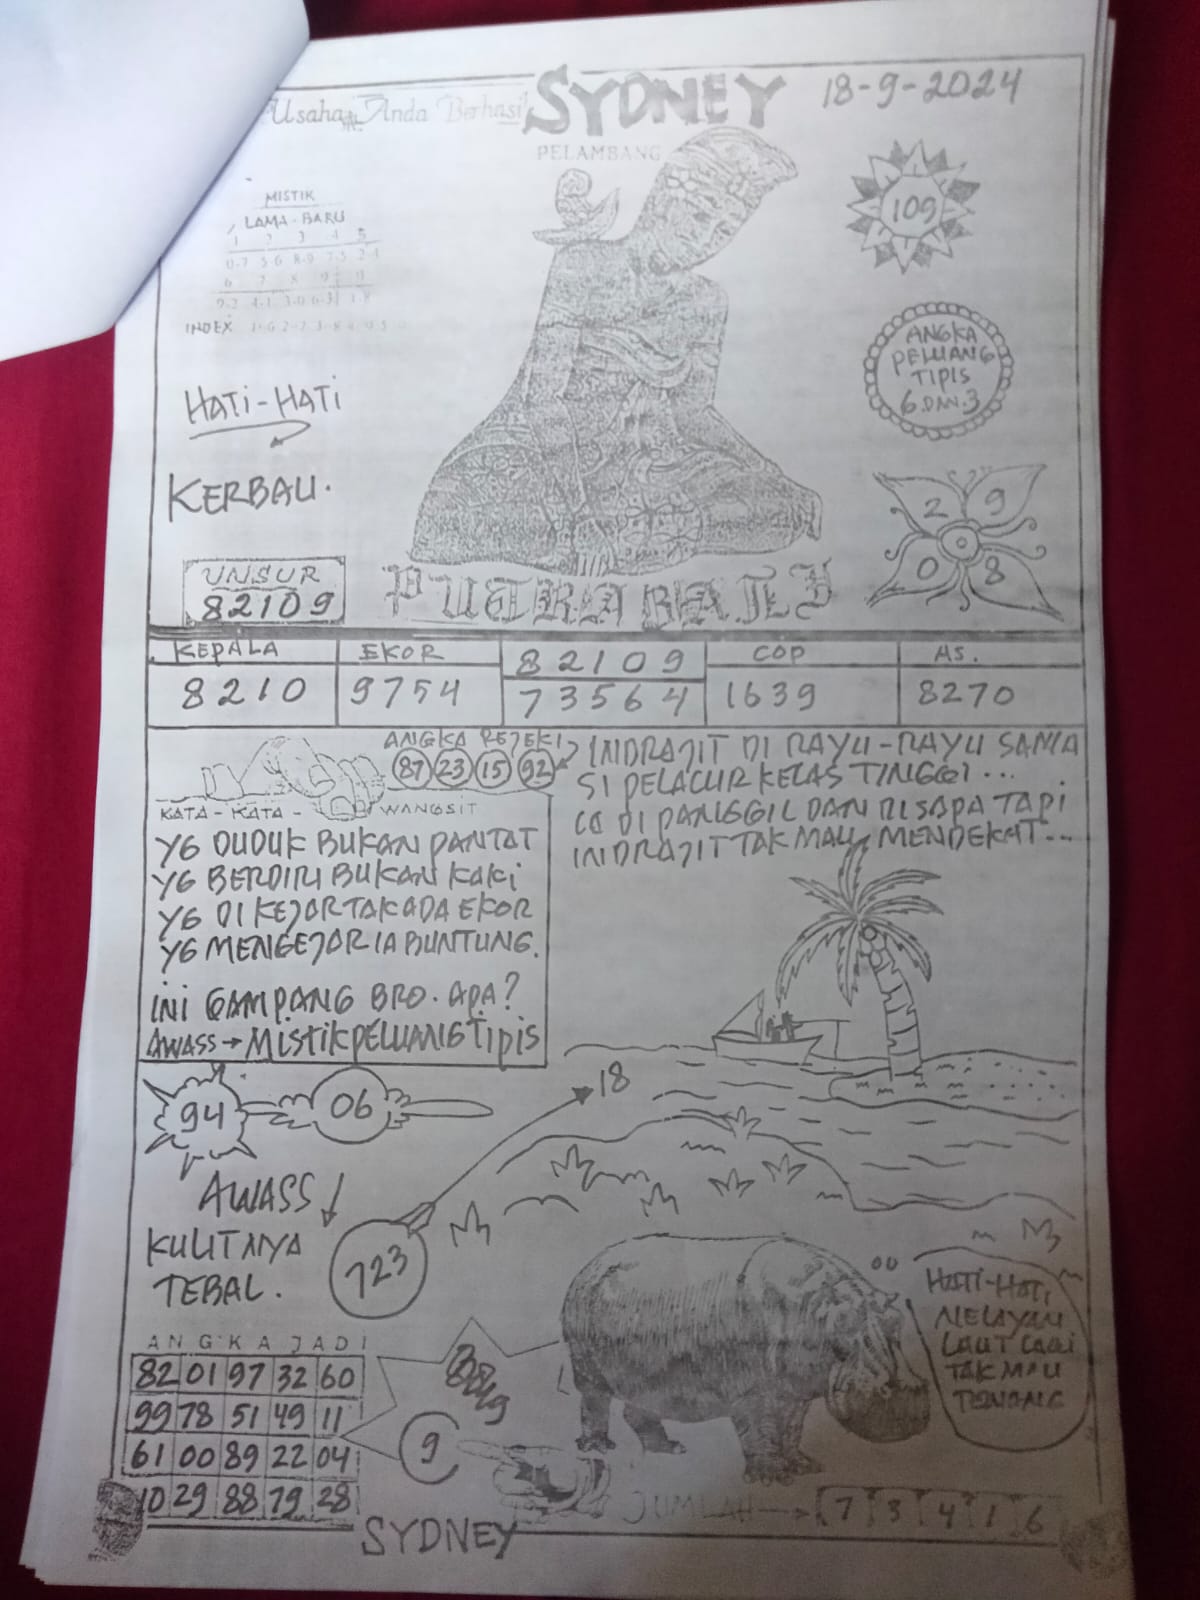 Usaha Anda Berhasil
SYDNEY
18-9-2024
PELAMBANG
MISTIK
LAMA - BARU
1 2 3 4 5
0-7 5-6 8-9 7-5 2-1
INDEX
109
ANGKA
PELUANG
TIPIS
6 DAN 3
HATI-HATI
KERBAU.
2 9
0 8
UNSUR
82109
PUTRA BALI
KEPALA EKOR 82109 COP AS.
8210 9754 73564 1639 8270
ANGKA REJEKI
87 23 15 92
INDRAJIT DI RAYU-RAYU SAMA
SI PELACUR KELAS TINGGI...
DI PANGGIL DAN DI SAPA TAPI
INDRAJIT TAK MAU MENDEKAT...
KATA - KATA - WANGSIT
YG DUDUK BUKAN PANTAT
YG BERDIRI BUKAN KAKI
YG DI KEJAR TAK ADA EKOR
YG MENGEJAR IA BUNTUNG.
INI GAMPANG BRO. APA?
AWASS → MISTIK PELUANG TIPIS
94 06
18
AWASS
KULITNYA
TEBAL.
723
HATI-HATI
NELAYAN
LAUT LAGI
TAK MAU
TENANG
ANGKA JADI
82 01 97 32 60
99 78 51 49 11
61 00 89 22 04
10 29 88 79 28
9
JUMLAH → 7 3 4 1 6
SYDNEY